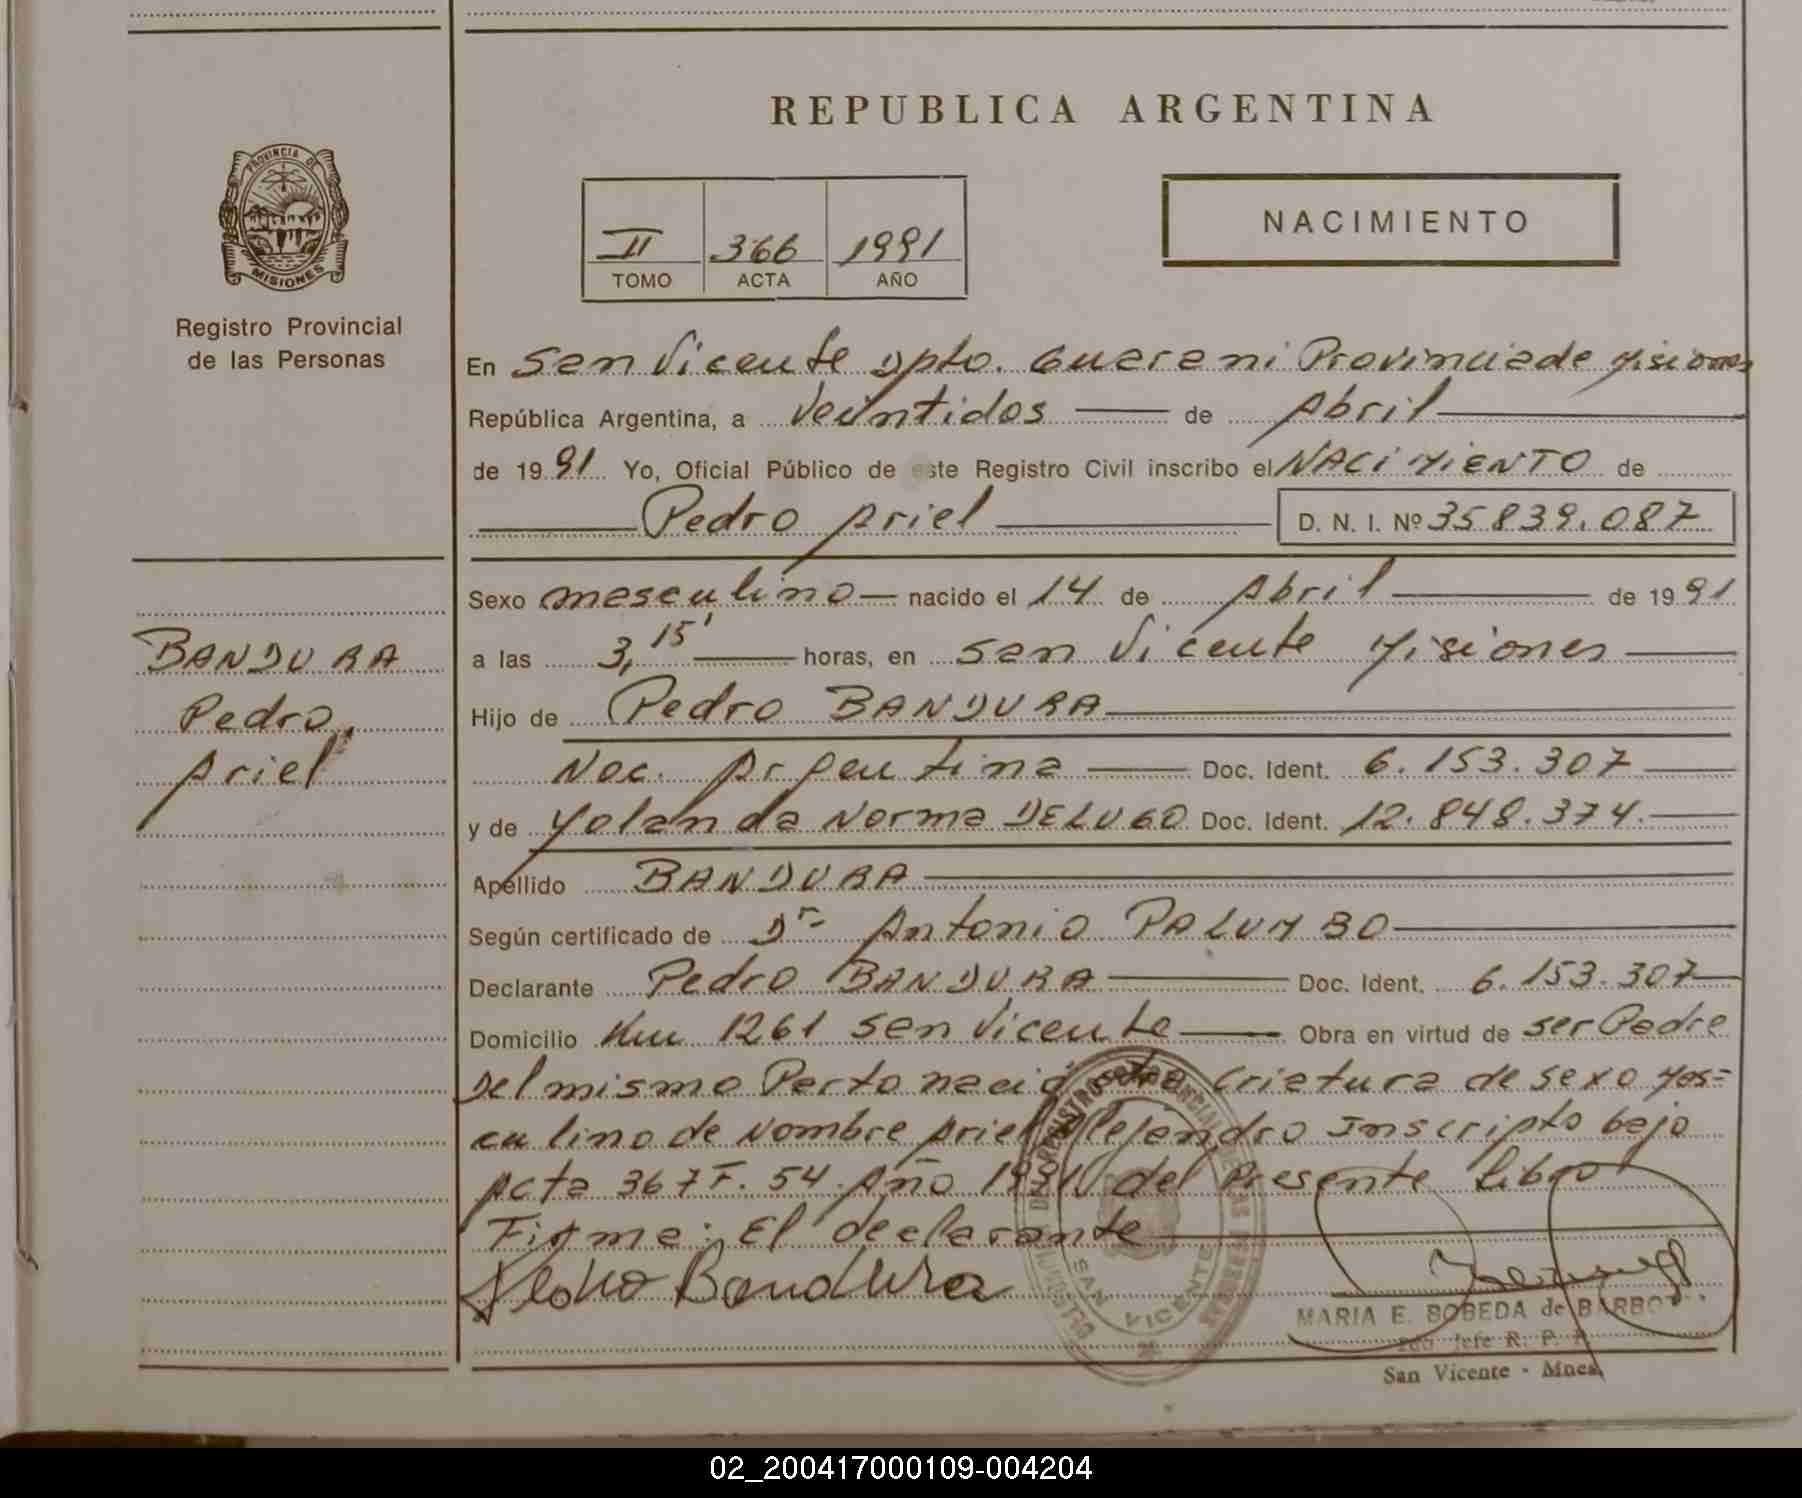 REPUBLICA ARGENTINA
PROVINCIA DE
MISIONES
Registro Provincial
de las Personas
II 366 1991
TOMO ACTA AÑO
NACIMIENTO
En San Vicente Dpto. Guarani Provincia de Misiones
República Argentina, a Veintidos de Abril
de 1991 Yo, Oficial Público de este Registro Civil inscribo el NACIMIENTO de
Pedro Ariel D. N. I. Nº 35839.087
BANDURA
Pedro,
Ariel
Sexo masculino nacido el 14 de Abril de 1991
a las 3,15' horas, en San Vicente Misiones
Hijo de Pedro BANDURA
Nac. Argentina Doc. Ident. 6.153.307
y de Yolanda Norma DELUGO Doc. Ident. 12.848.374.
Apellido BANDURA
Según certificado de Dr Antonio PALUMBO
Declarante Pedro BANDURA Doc. Ident. 6.153.307
Domicilio Km 1261 San Vicente Obra en virtud de ser Padre
Del mismo Parto nació otra criatura de sexo Mas=
culino de Nombre Ariel Alejandro Inscripto bajo
Acta 367 F. 54. Año 1991 del Presente libro
Firma: El declarante
Pedro Bandura
SAN VICENTE
MARIA E. BOBEDA de BARBO
Jefe R. P. P.
San Vicente - Mnes.
02_200417000109-004204